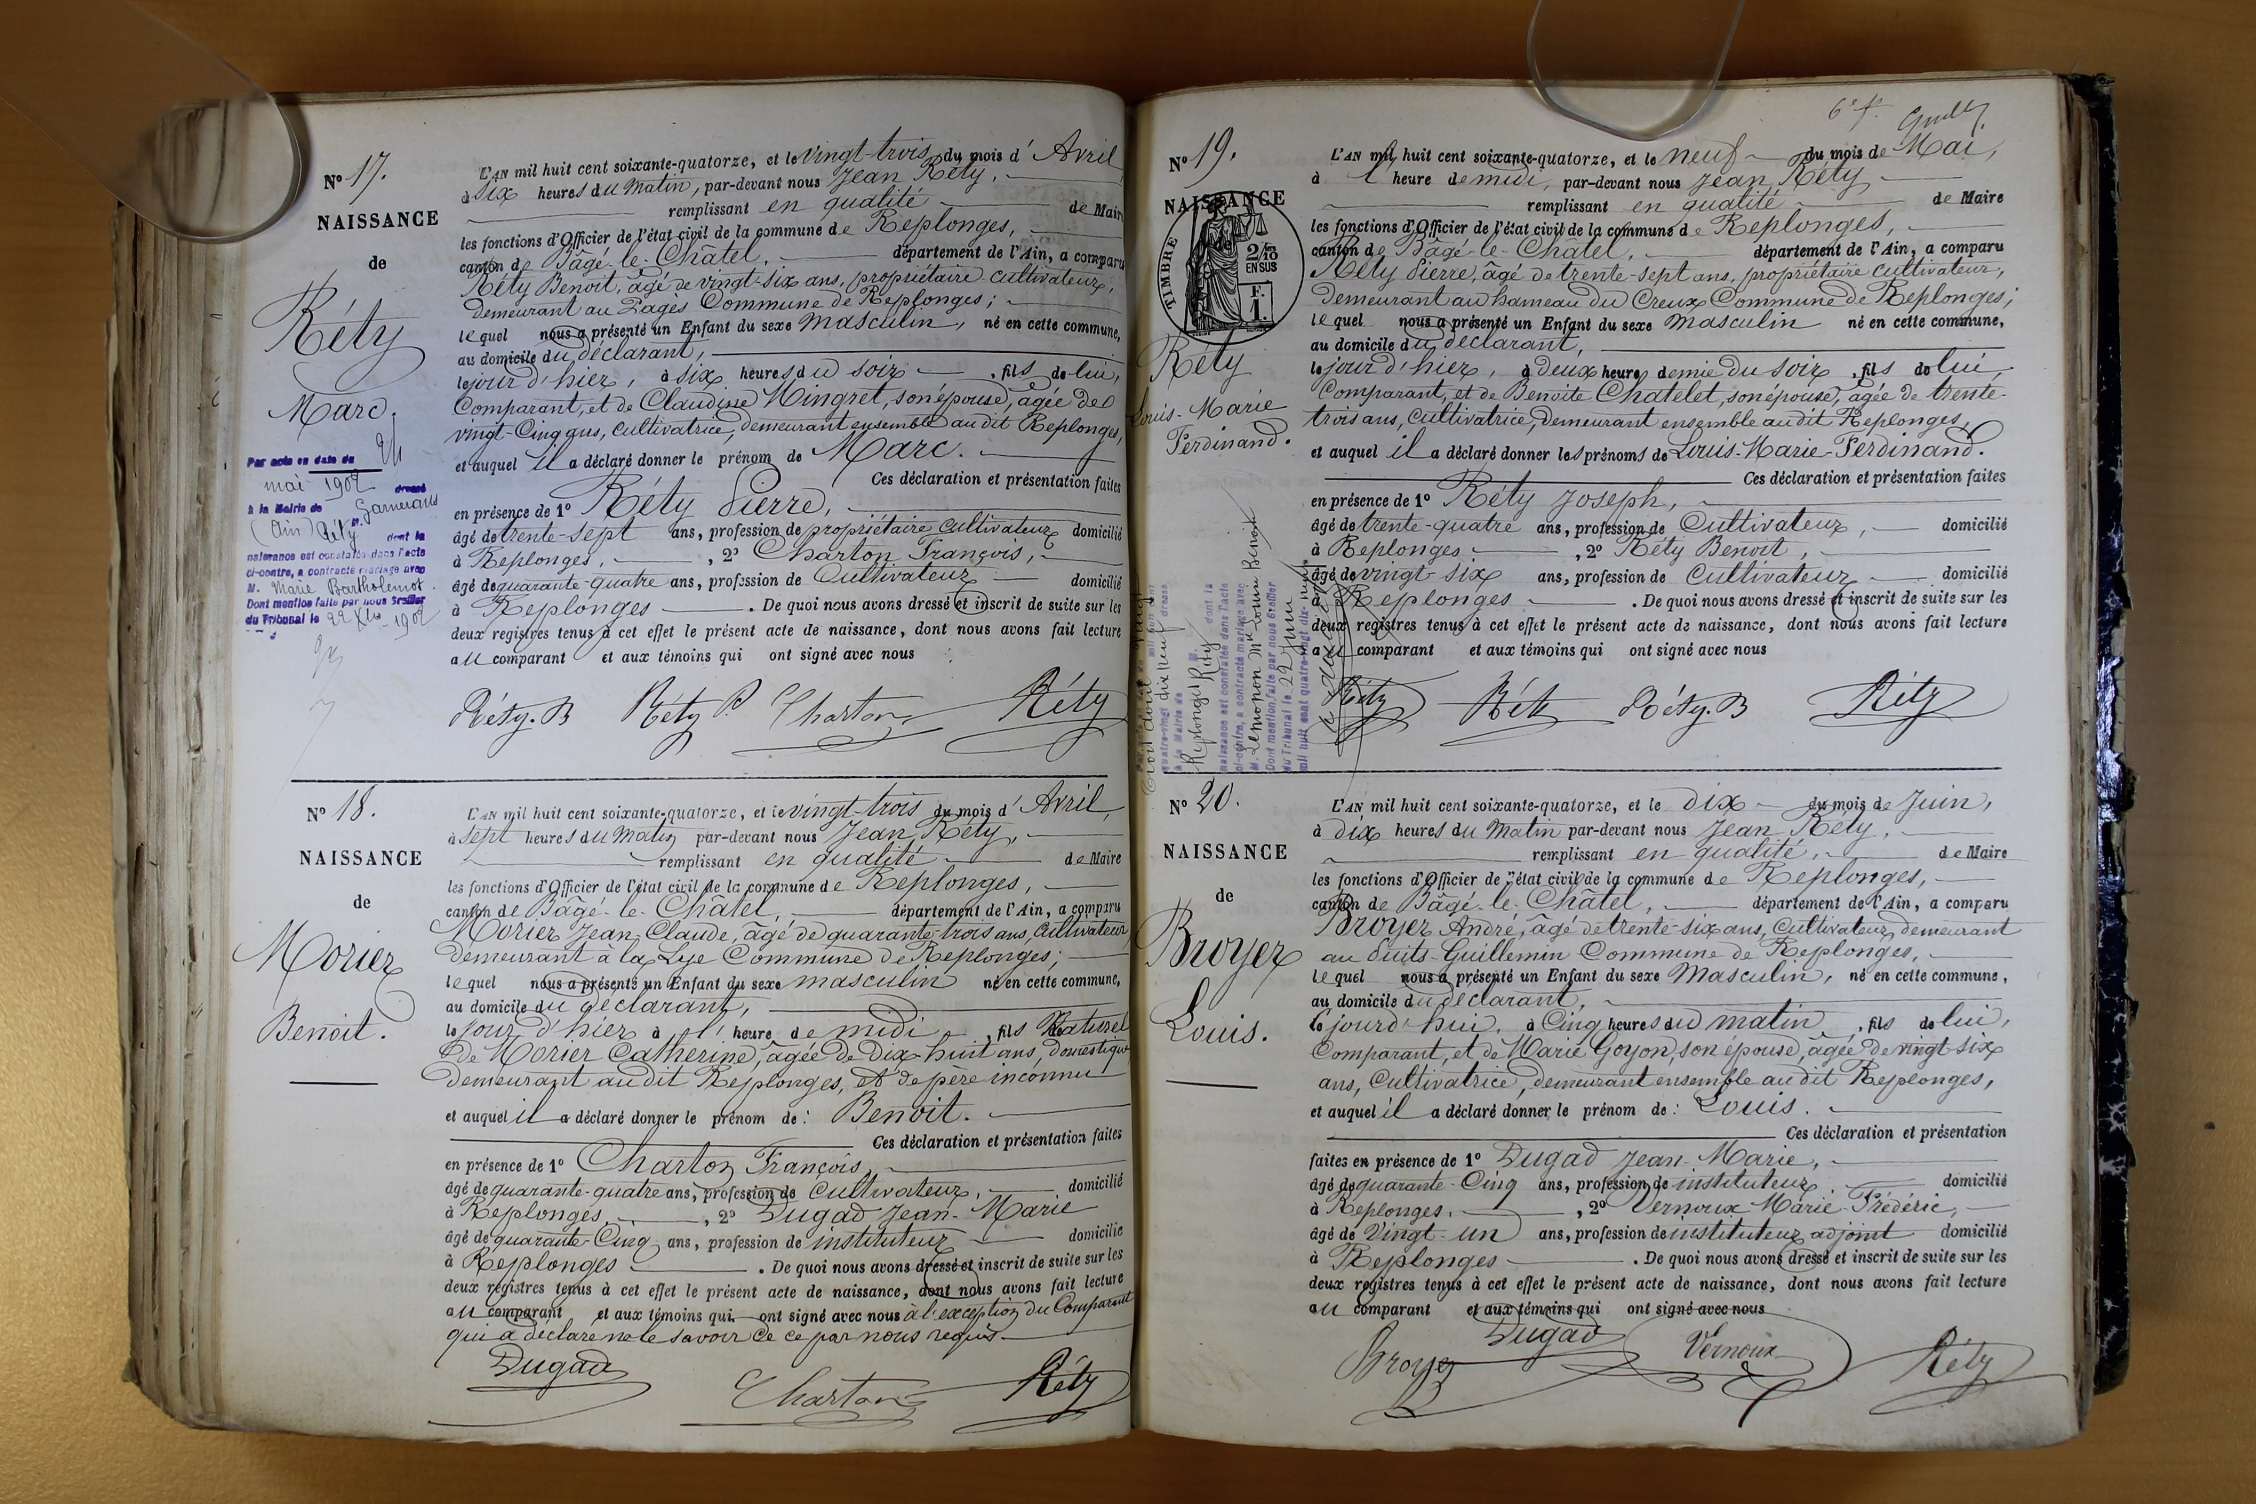 No 17.
NAISSANCE
de
Réty
Marc.
Par acte en date du 24
mai 1902 dressé
à la Mairie de Garnerans
(Ain) Réty M.
dont la
naissance est constatée dans l'acte
ci-contre, a contracté mariage avec
M. Marie Bartholemot.
Dont mention faite par nous Greffier
du Tribunal le 22 Xbre 1902
L'AN mil huit cent soixante-quatorze, et le vingt-trois du mois d'Avril,
à six heures du matin, par-devant nous Jean Réty,
remplissant en qualité de Maire
les fonctions d'Officier de l'état civil de la commune de Replonges,
canton de Bâgé-le-Châtel, département de l'Ain, a comparu
Réty Benoit, âgé de vingt-six ans, propriétaire cultivateur,
demeurant au Pagès Commune de Replonges;
lequel nous a présenté un Enfant du sexe masculin, né en cette commune,
au domicile du déclarant,
le jour d'hier, à six heures du soir, fils de lui,
Comparant, et de Claudine Mingret, son épouse, âgée de
vingt-Cinq ans, cultivatrice, demeurant ensemble au dit Replonges,
et auquel il a déclaré donner le prénom de Marc.
Ces déclaration et présentation faites
en présence de 1º Réty Pierre,
âgé de trente-sept ans, profession de propriétaire cultivateur domicilié
à Replonges, , 2º Charton François,
âgé de quarante-quatre ans, profession de Cultivateur domicilié
à Replonges . De quoi nous avons dressé et inscrit de suite sur les
deux registres tenus à cet effet le présent acte de naissance, dont nous avons fait lecture
au comparant et aux témoins qui ont signé avec nous
Réty. B Réty P. Charton Réty
No 18.
NAISSANCE
de
Morier
Benoit.
L'AN mil huit cent soixante-quatorze, et le vingt-trois du mois d'Avril,
à sept heures du matin par-devant nous Jean Réty,
remplissant en qualité de Maire
les fonctions d'Officier de l'état civil de la commune de Replonges,
canton de Bâgé-le-Châtel, département de l'Ain, a comparu
Morier Jean-Claude, âgé de quarante-trois ans, Cultivateur
demeurant à la Lye Commune de Replonges;
lequel nous a présenté un Enfant du sexe masculin né en cette commune,
au domicile du déclarant,
le jour d'hier à l' heure de midi, fils Naturel
de Morier Catherine, âgée de Dix-huit ans, domestique
demeurant au dit Replonges, et de père inconnu
et auquel il a déclaré donner le prénom de: Benoit.
Ces déclaration et présentation faites
en présence de 1º Charton François,
âgé de quarante-quatre ans, profession de Cultivateur, domicilié
à Replonges, , 2º Dugad Jean-Marie
âgé de quarante-Cinq ans, profession de instituteur domicilié
à Replonges . De quoi nous avons dressé et inscrit de suite sur les
deux registres tenus à cet effet le présent acte de naissance, dont nous avons fait lecture
au comparant et aux témoins qui ont signé avec nous à l'exception du Comparant
qui a déclaré ne le savoir de ce par nous requis
Dugad Charton Réty
6e f.
No 19.
NAISSANCE
de
TIMBRE
2/10
EN SUS
F.
1.
Réty
Louis-Marie
Ferdinand.
quatre-vingt dix neuf dressé
à la Mairie de
Replonges Réty M. dont la
naissance est constatée dans l'acte
ci-contre, a contracté mariage avec
M. Lemonon Benoit
Dont mention faite par nous Greffier
du Tribunal le 22 Juin
mil huit cent quatre-vingt dix-neuf
L'AN mil huit cent soixante-quatorze, et le neuf du mois de Mai,
à l' heure de midi, par-devant nous Jean Réty
remplissant en qualité de Maire
les fonctions d'Officier de l'état civil de la commune de Replonges,
canton de Bâgé-le-Châtel, département de l'Ain, a comparu
Réty Pierre, âgé de trente-sept ans, propriétaire cultivateur,
demeurant au hameau du Creux Commune de Replonges;
lequel nous a présenté un Enfant du sexe Masculin né en cette commune,
au domicile du déclarant,
le jour d'hier, à deux heures demie du soir, fils de lui,
Comparant, et de Benoite Chatelet, son épouse, âgée de trente-
trois ans, Cultivatrice, demeurant ensemble au dit Replonges,
et auquel il a déclaré donner les prénoms de Louis-Marie-Ferdinand.
Ces déclaration et présentation faites
en présence de 1º Réty Joseph,
âgé de trente-quatre ans, profession de Cultivateur, domicilié
à Replonges , 2º Réty Benoit,
âgé de vingt-six ans, profession de Cultivateur domicilié
à Replonges . De quoi nous avons dressé et inscrit de suite sur les
deux registres tenus à cet effet le présent acte de naissance, dont nous avons fait lecture
au comparant et aux témoins qui ont signé avec nous
Réty Réty Réty. B Réty
No 20.
NAISSANCE
de
Broyer
Louis.
L'AN mil huit cent soixante-quatorze, et le dix du mois de Juin,
à dix heures du Matin par-devant nous Jean Réty,
remplissant en qualité, de Maire
les fonctions d'Officier de l'état civil de la commune de Replonges,
canton de Bâgé-le-Châtel, département de l'Ain, a comparu
Broyer André, âgé de trente-six ans, Cultivateur demeurant
au Puits-Guillemin Commune de Replonges,
lequel nous a présenté un Enfant du sexe Masculin, né en cette commune,
au domicile du déclarant,
le jourd'hui, à Cinq heures du matin, fils de lui,
Comparant, et de Marie Goyon, son épouse, âgée de vingt-six
ans, Cultivatrice, demeurant ensemble au dit Replonges,
et auquel il a déclaré donner le prénom de: Louis.
Ces déclaration et présentation
faites en présence de 1º Dugad Jean-Marie,
âgé de quarante-Cinq ans, profession de instituteur domicilié
à Replonges, , 2º Vernoux Marie-Frédéric,
âgé de Vingt-un ans, profession de instituteur adjoint domicilié
à Replonges . De quoi nous avons dressé et inscrit de suite sur les
deux registres tenus à cet effet le présent acte de naissance, dont nous avons fait lecture
au comparant et aux témoins qui ont signé avec nous
Broyer Dugad Vernoux Réty